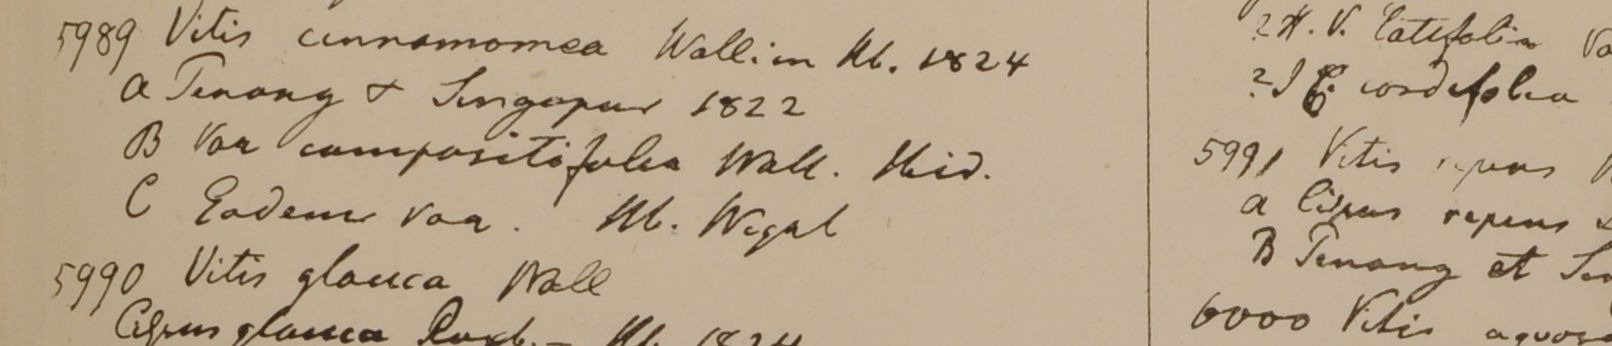 5989 Vitis cinnamomea Wall. in Hb. 1824
a Penang & Singapur 1822
B Var compositifolia Wall. Ibid.
C Eadem var. Hb. Wigal
5990 Vitis glauca Wall
Cissus glauca Roxb. – Hb. 1824
? H. V. latifolia Va
? I C. cordifolia
5991 Vitis repens
a Cissus repens
B Penang et Sin
6000 Vitis aquosa